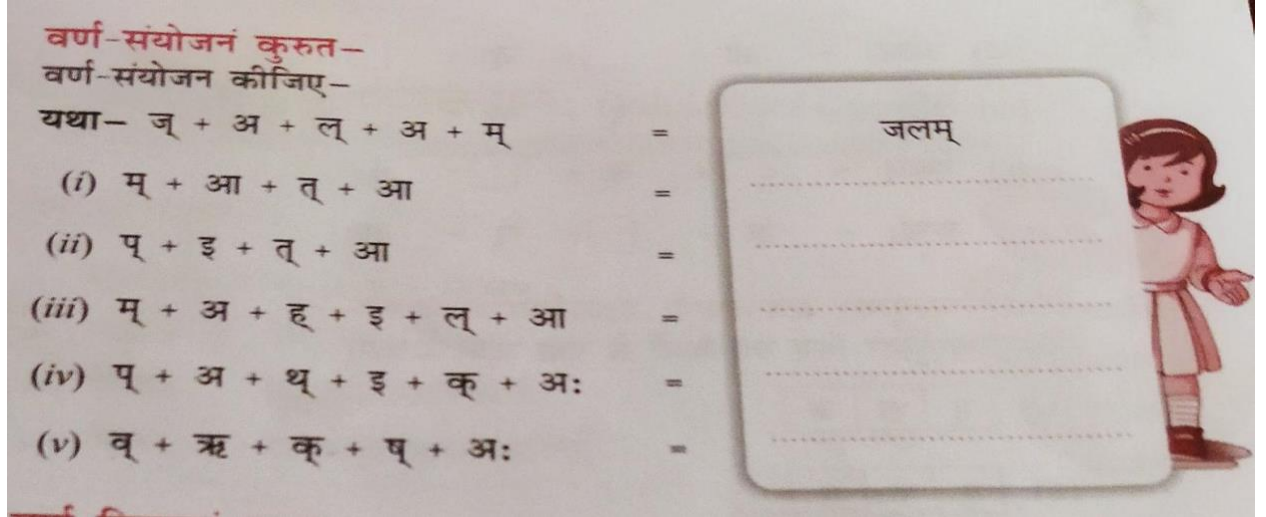 वर्ण-संयोजनं कुरुत–
वर्ण-संयोजन कीजिए–
यथा– ज् + अ + ल् + अ + म् = जलम्
(i) म् + आ + त् + आ = ....................
(ii) प् + इ + त् + आ = ....................
(iii) म् + अ + ह् + इ + ल् + आ = ....................
(iv) प् + अ + थ् + इ + क् + अः = ....................
(v) व् + ऋ + क् + ष् + अः = ....................